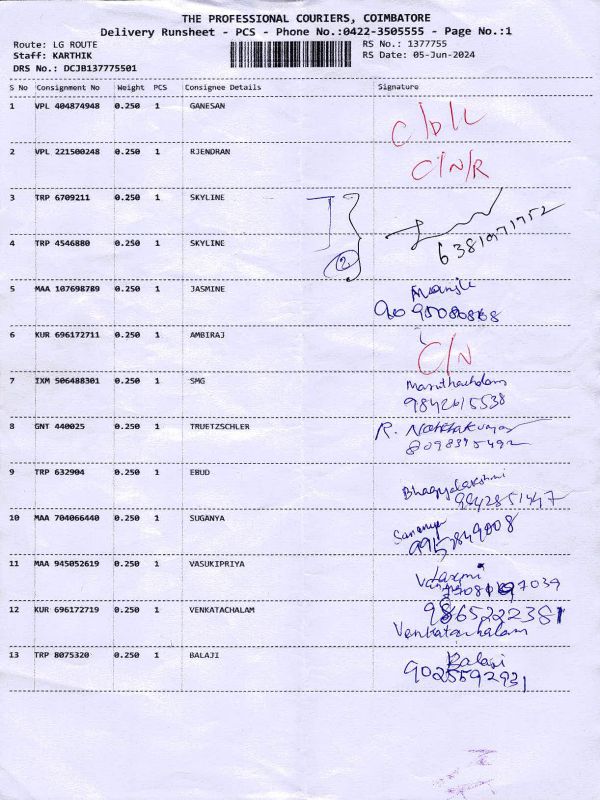 THE PROFESSIONAL COURIERS, COIMBATORE
Delivery Runsheet - PCS - Phone No.:0422-3505555 - Page No.:1
Route: LG ROUTE RS No.: 1377755
Staff: KARTHIK RS Date: 05-Jun-2024
DRS No.: DCJB137775501
S No Consignment No Weight PCS Consignee Details Signature
1 VPL 404874948 0.250 1 GANESAN C/D/L
2 VPL 221500248 0.250 1 RJENDRAN C/N/R
3 TRP 6709211 0.250 1 SKYLINE
4 TRP 4546880 0.250 1 SKYLINE 2
5 MAA 107698789 0.250 1 JASMINE
6 KUR 696172711 0.250 1 AMBIRAJ C/N
7 IXM 506488301 0.250 1 SMG
9842615538
8 GNT 440025 0.250 1 TRUETZSCHLER R.
8098395492
9 TRP 632904 0.250 1 EBUD Bhagyalakshmi
9942851447
10 MAA 704066440 0.250 1 SUGANYA
11 MAA 945052619 0.250 1 VASUKIPRIYA
12 KUR 696172719 0.250 1 VENKATACHALAM 9865222381
Venkatachalam
13 TRP 8075320 0.250 1 BALAJI Balaji
9025592931